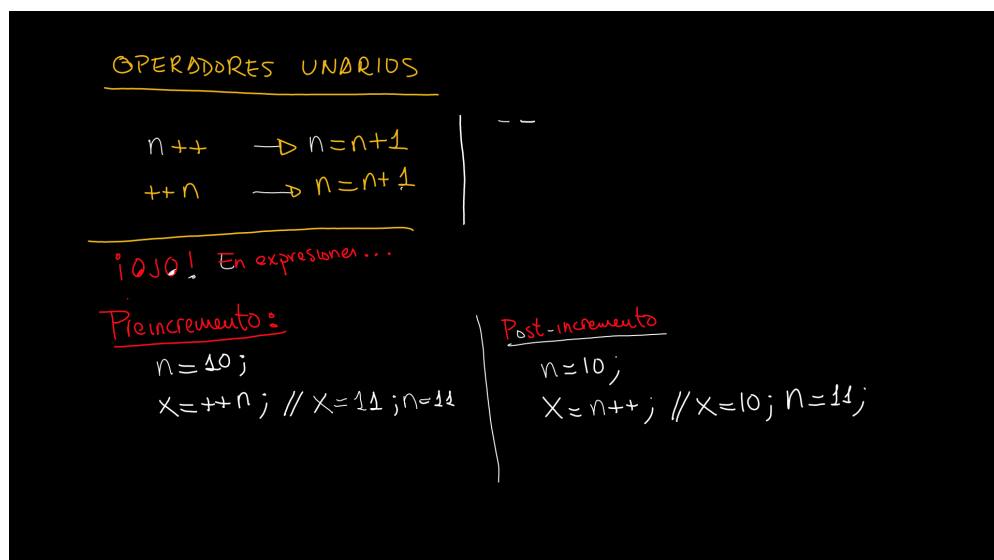 OPERADORES UNARIOS
n++ → n=n+1
++n → n=n+1
--
¡OJO! En expresiones...
Preincremento:
n=10;
x=++n; // x=11; n=11
Post-incremento
n=10;
x=n++; // x=10; n=11;